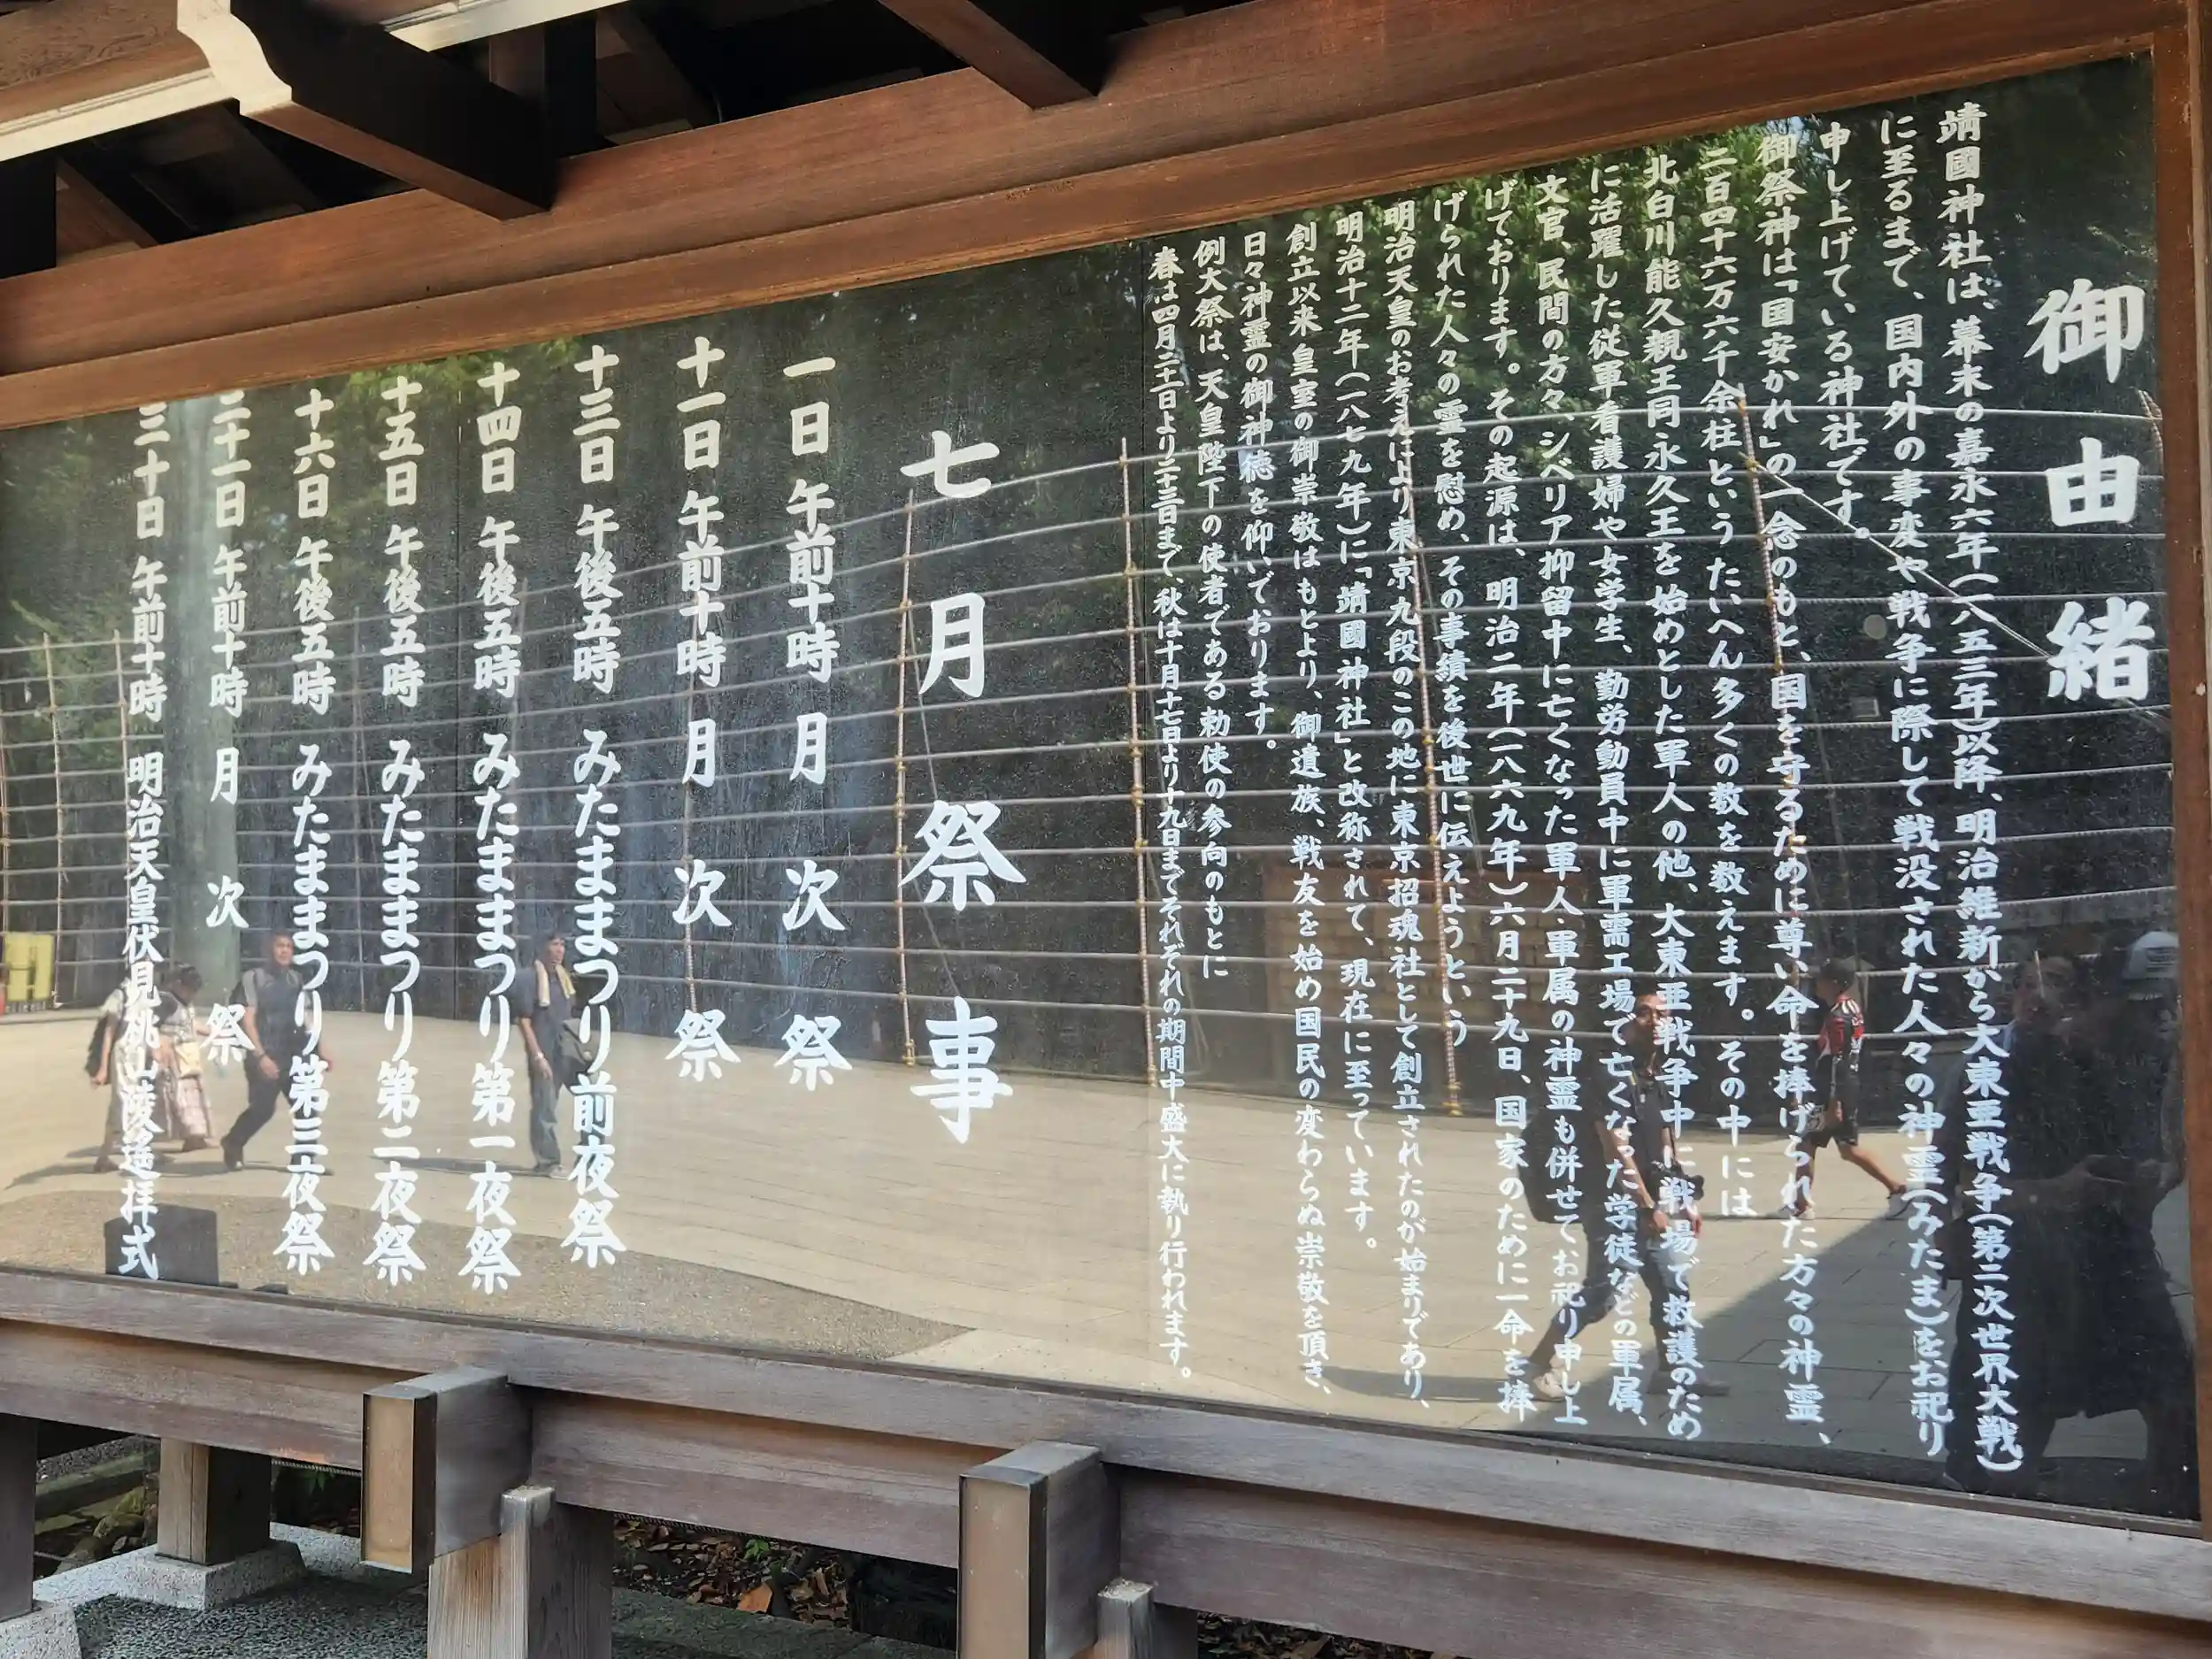 御由緒
靖國神社は、幕末の嘉永六年(一八五三年)以降、明治維新から大東亜戦争(第二次世界大戦)
に至るまで、国内外の事変や戦争に際して戦没された人々の神霊(みたま)をお祀り
申し上げている神社です。
御祭神は「国安かれ」の一念のもと、国を守るために尊い命を捧げられた方々の神霊、
二百四十六万六千余柱というたいへん多くの数を数えます。その中には
北白川能久親王同永久王を始めとした軍人の他、大東亜戦争中に戦場で救護のため
に活躍した従軍看護婦や女学生、勤労動員中に軍需工場で亡くなった学徒などの軍属、
文官、民間の方々、シベリア抑留中に亡くなった軍人・軍属の神霊も併せてお祀り申し上
げております。その起源は、明治二年(一八六九年)六月二十九日、国家のために一命を捧
げられた人々の霊を慰め、その事績を後世に伝えようという
明治天皇のお考えにより東京九段のこの地に東京招魂社として創立されたのが始まりであり、
明治十二年(一八七九年)に「靖國神社」と改称されて、現在に至っています。
創立以来皇室の御崇敬はもとより、御遺族、戦友を始め国民の変わらぬ崇敬を頂き、
日々神霊の御神徳を仰いでおります。
例大祭は、天皇陛下の使者である勅使の参向のもとに
春は四月二十一日より二十三日まで、秋は十月十七日より十九日までそれぞれの期間中盛大に執り行われます。
七月祭事
一日 午前十時 月次祭
十一日 午前十時 月次祭
十三日 午後五時 みたままつり前夜祭
十四日 午後五時 みたままつり第一夜祭
十五日 午後五時 みたままつり第二夜祭
十六日 午後五時 みたままつり第三夜祭
二十一日 午前十時 月次祭
三十日 午前十時 明治天皇伏見桃山陵遙拝式